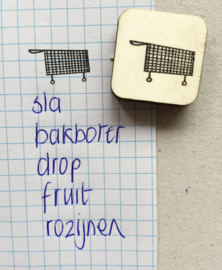 sla
bakboter
drop
fruit
rozijnen